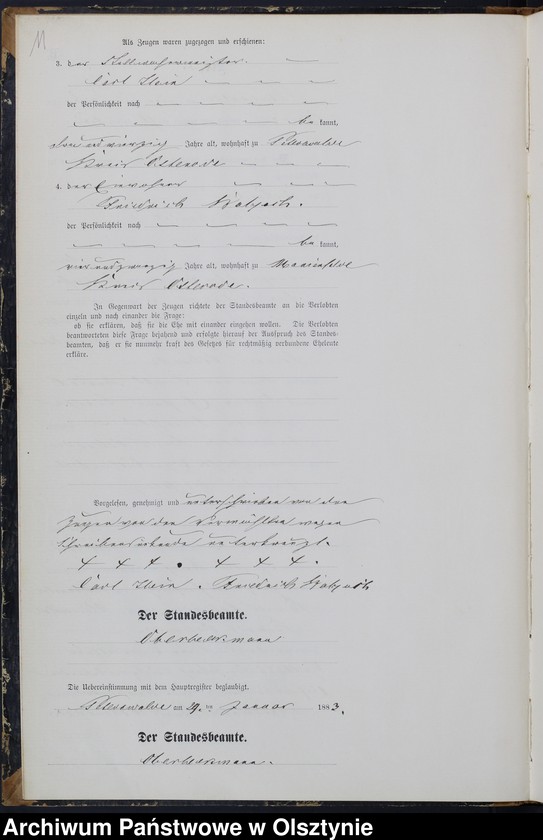 11
Als Zeugen waren zugezogen und erschienen:
3. der Stellmachermeister
Carl Stein
der Persönlichkeit nach
be kannt,
dreiundvierzig Jahre alt, wohnhaft zu
Kreis Osterode
4. der Einwohner
Friedrich
der Persönlichkeit nach
be kannt,
vierundzwanzig Jahre alt, wohnhaft zu Marienfelde
Kreis Osterode.
In Gegenwart der Zeugen richtete der Standesbeamte an die Verlobten
einzeln und nach einander die Frage:
ob sie erklären, daß sie die Ehe mit einander eingehen wollen. Die Verlobten
beantworteten diese Frage bejahend und erfolgte hierauf der Ausspruch des Standes-
beamten, daß er sie nunmehr kraft des Gesetzes für rechtmäßig verbundene Eheleute
erkläre.
Vorgelesen, genehmigt und unterschrieben von den
Zeugen von den Vermählten wegen
Schreibensunkunde unterkreuzt.
+ + + . + + + .
Carl Stein . Friedrich
Der Standesbeamte.
Oberbeckmann
Die Uebereinstimmung mit dem Hauptregister beglaubigt.
am 29. ten Januar 1883.
Der Standesbeamte.
Oberbeckmann.
Archiwum Państwowe w Olsztynie